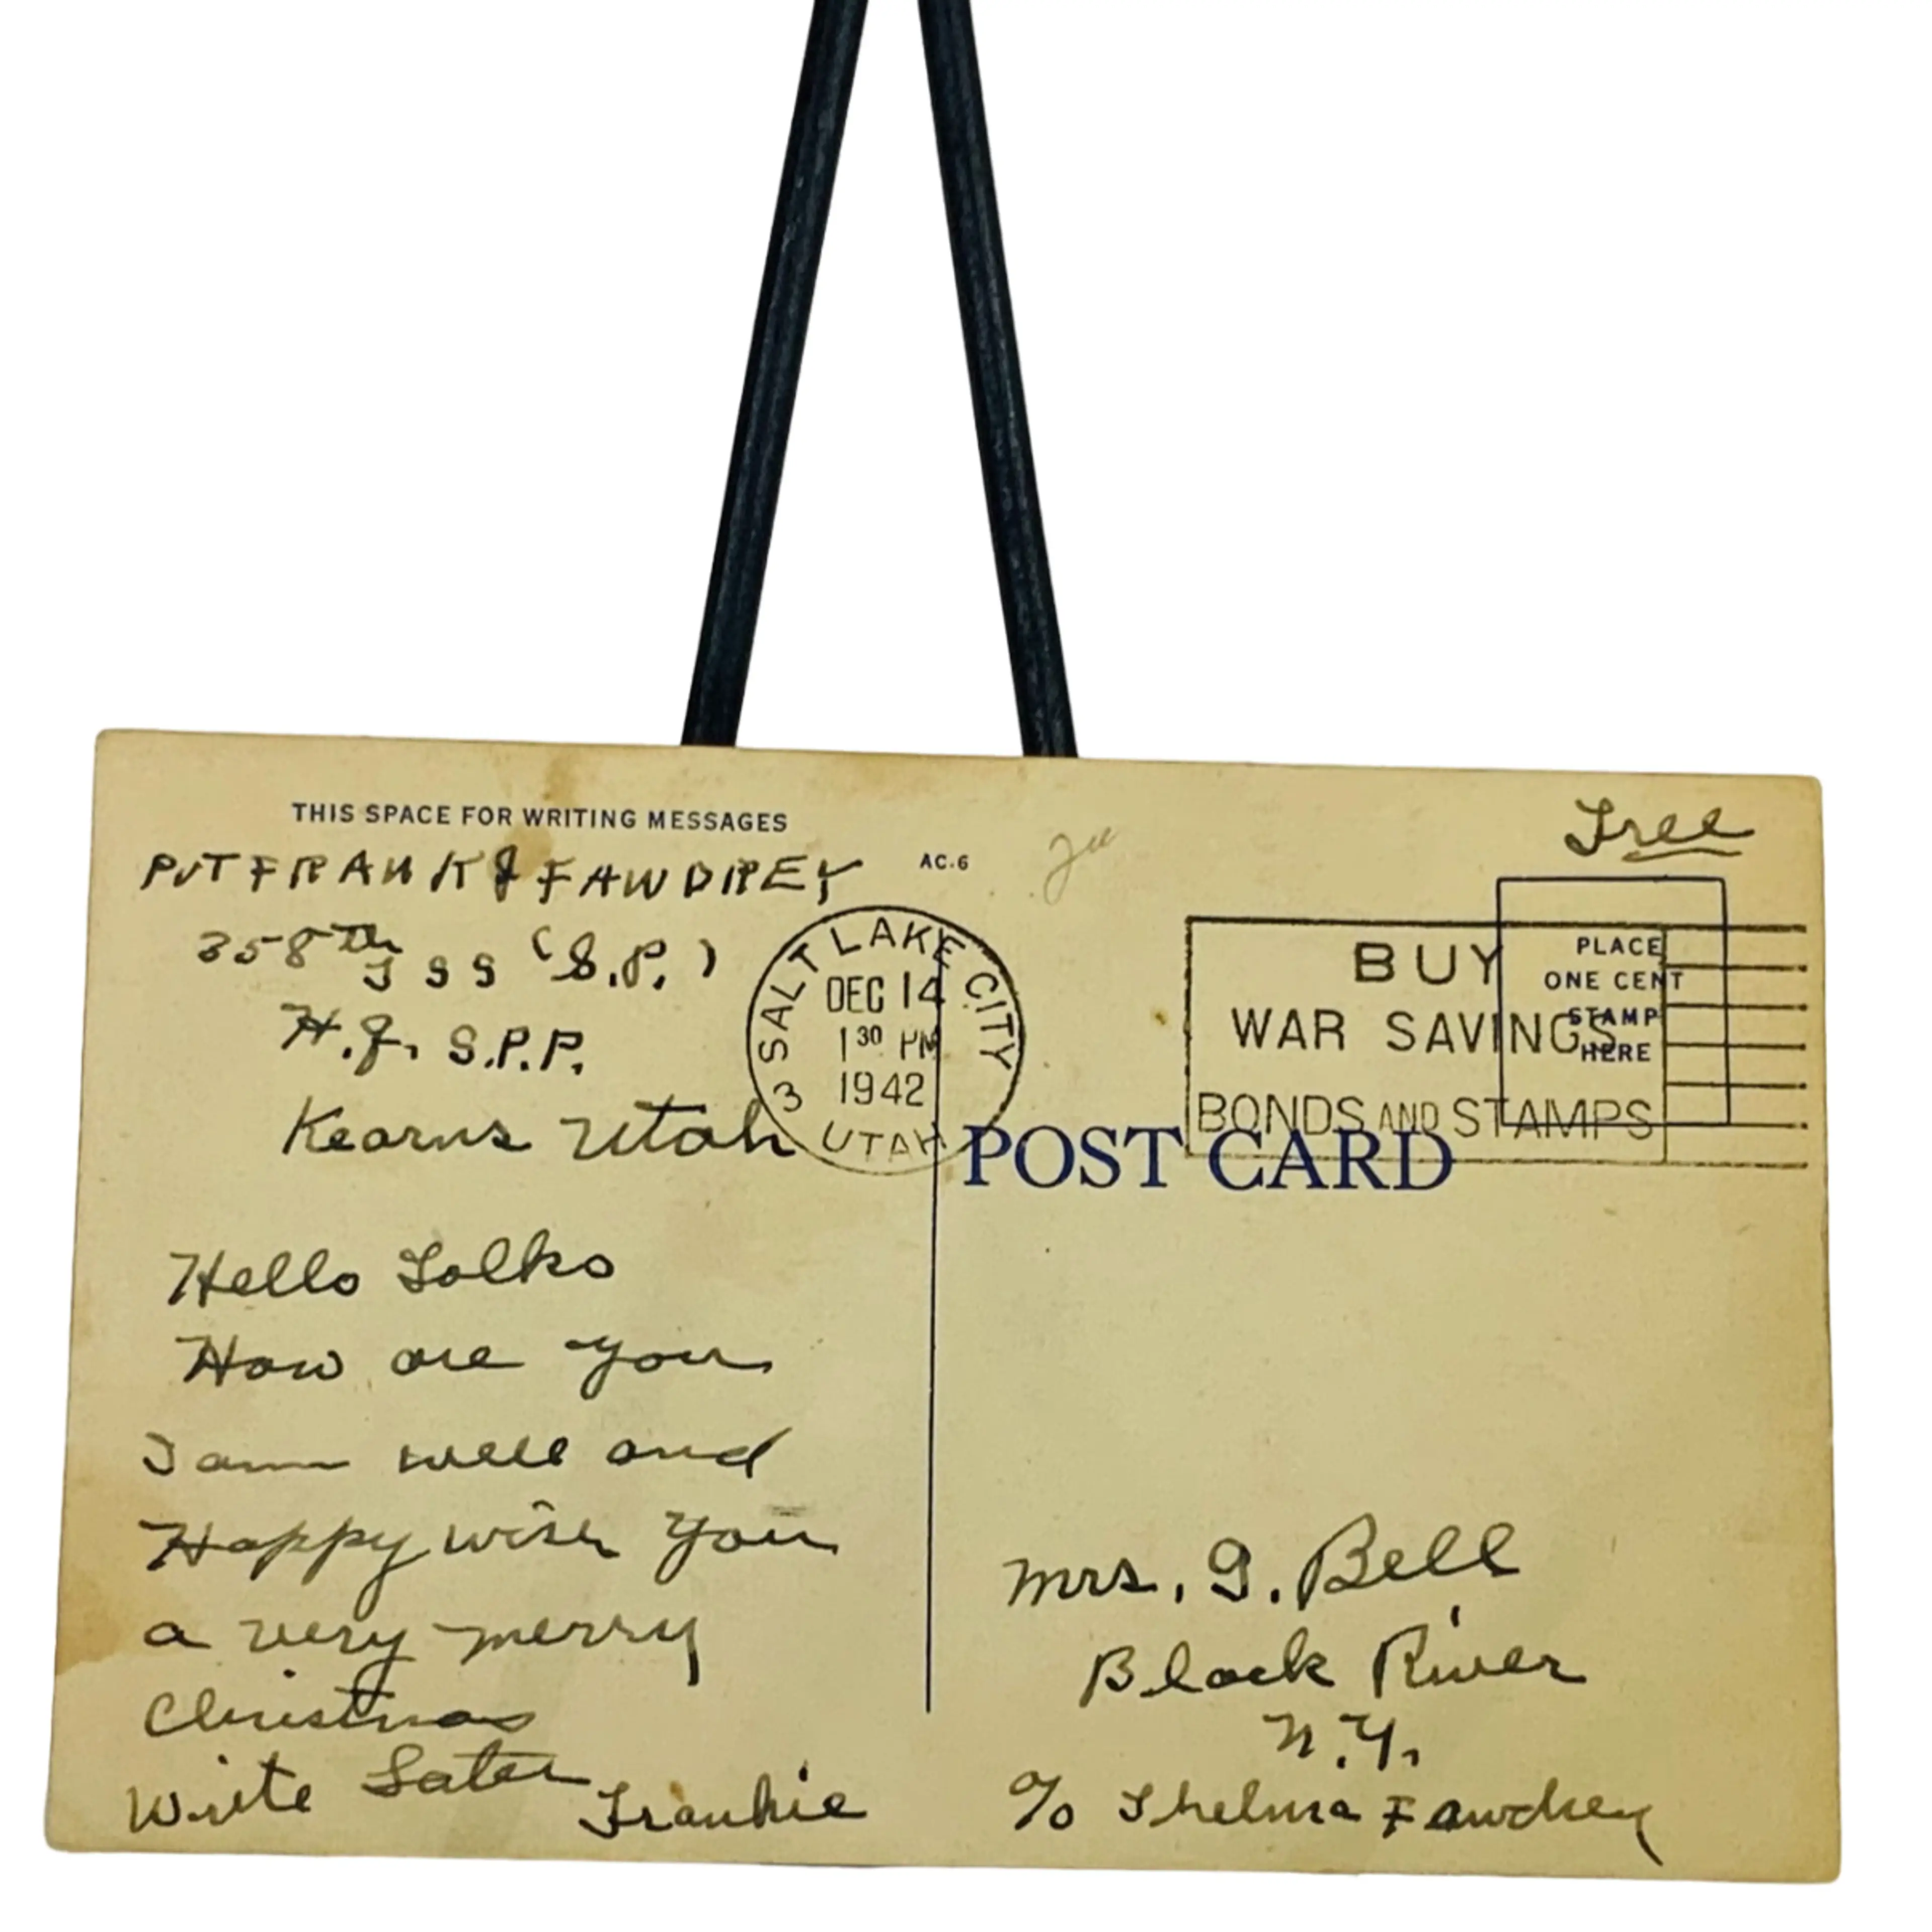 THIS SPACE FOR WRITING MESSAGES
AC.6
PVT FRANK J FAWDREY
358th T S S (S.P.)
S.P.P.
Kearns Utah
Hello Folks
How are you
I am well and
Happy wish you
a very merry
Christmas
Write Later
Frankie
3 SALT LAKE CITY
DEC 14
1 30 PM
1942
UTAH
Free
BUY
WAR SAVINGS
BONDS AND STAMPS
PLACE
ONE CENT
STAMP
HERE
POST CARD
Mrs. G. Bell
Black River
N.Y.
c/o Thelma Fawdrey